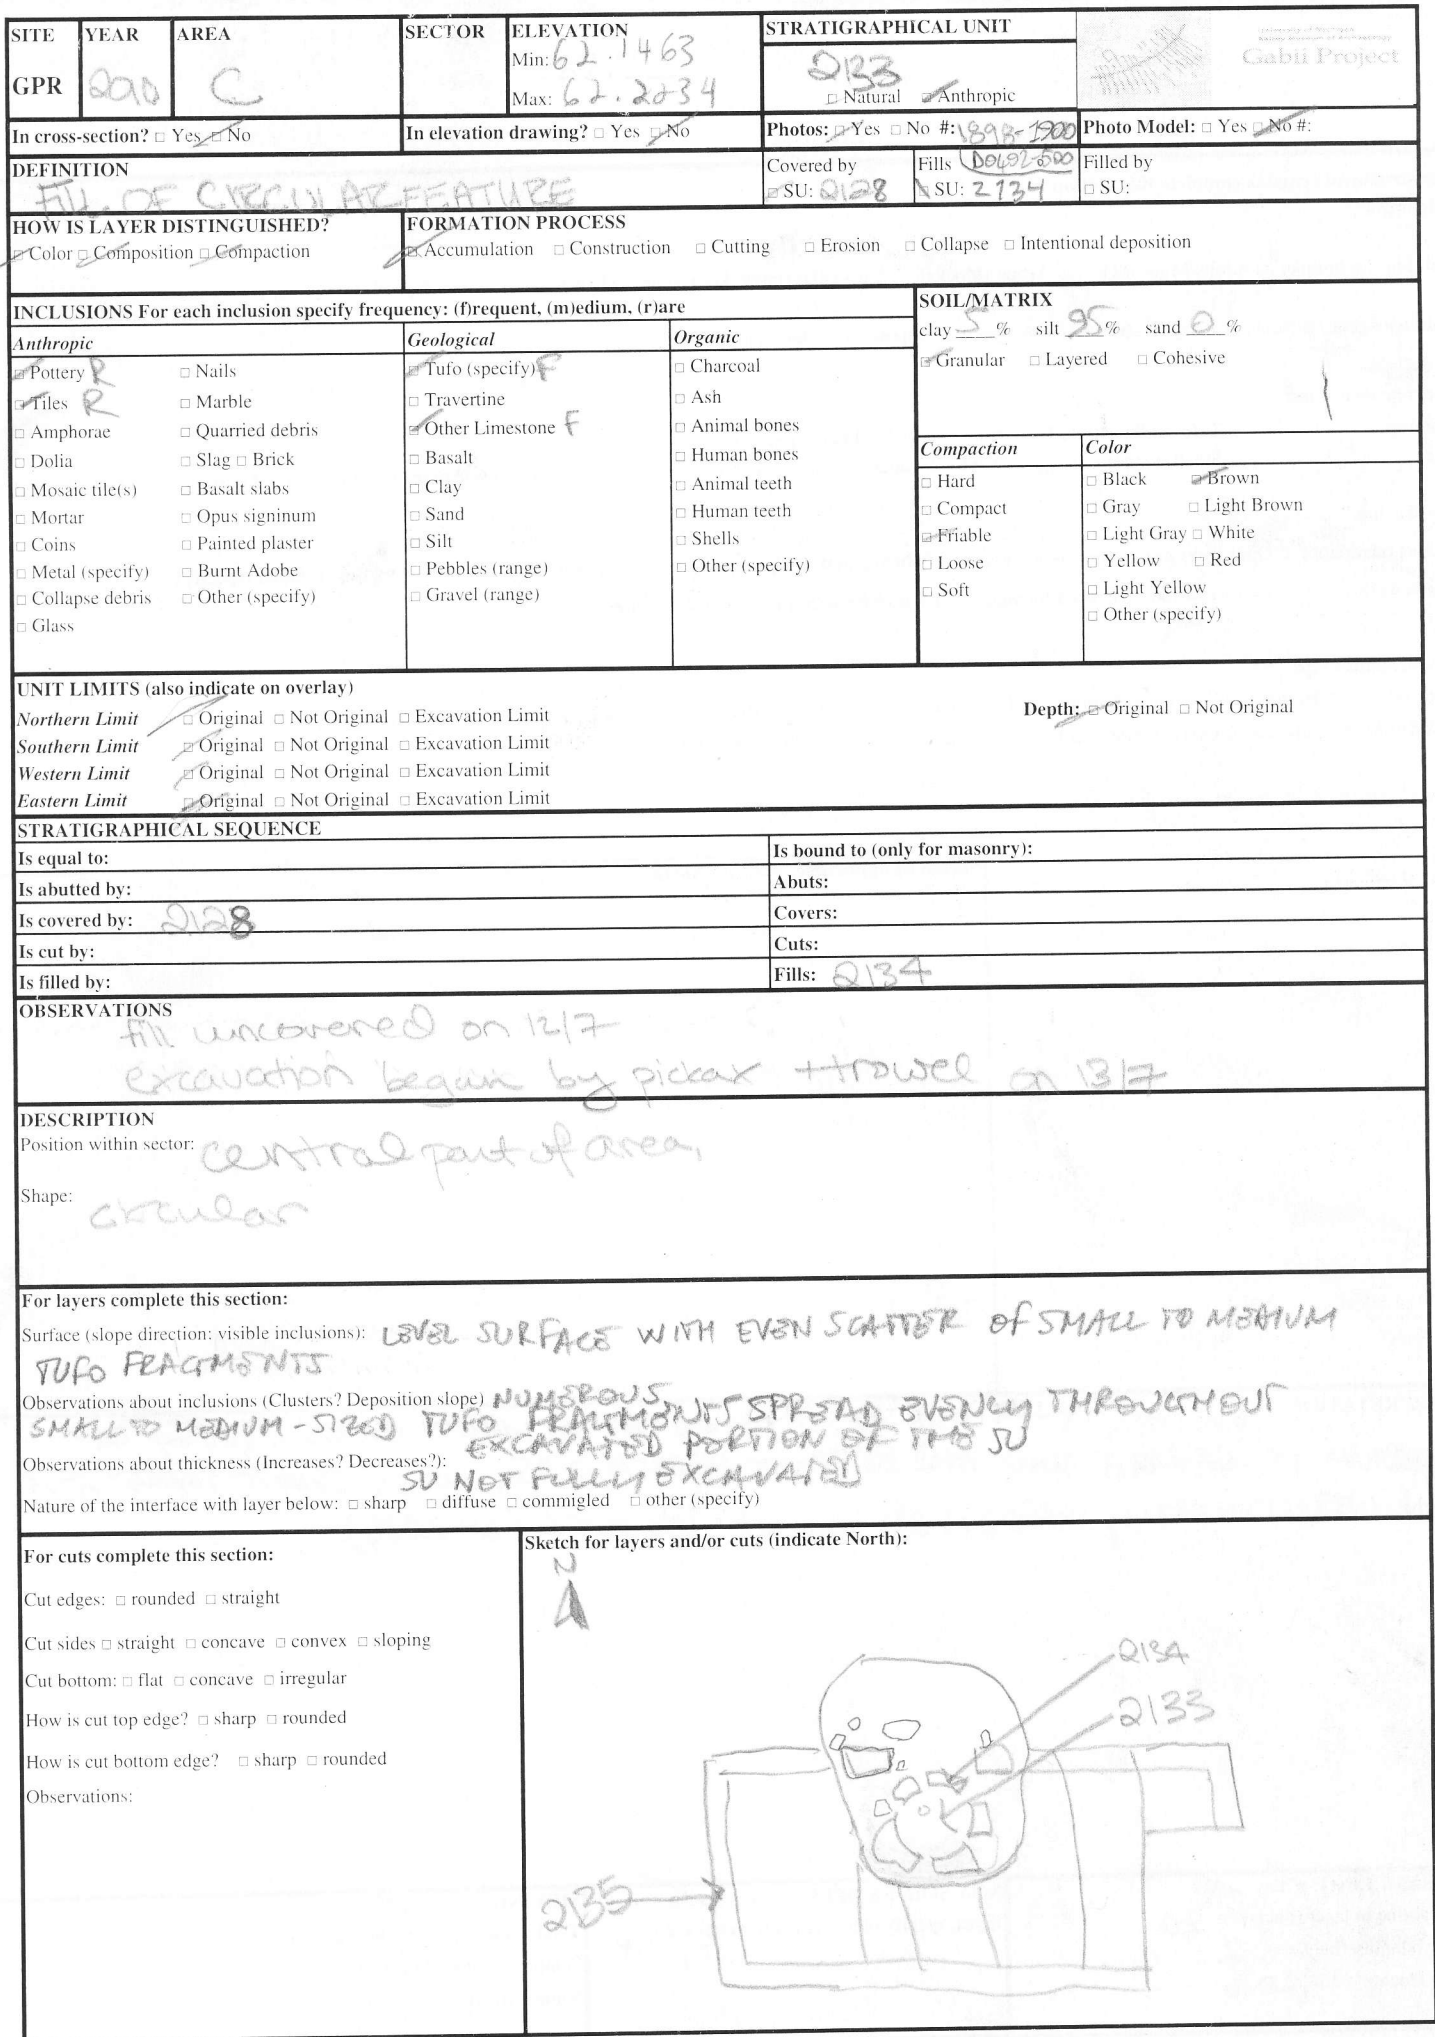 SITE YEAR AREA SECTOR ELEVATION STRATIGRAPHICAL UNIT
GPR 2010 C Min: 62.1463 2133
Max: 62.2234 □ Natural □ Anthropic
Gabii Project
In cross-section? □ Yes □ No In elevation drawing? □ Yes □ No Photos: □ Yes □ No #: 1898-1900 Photo Model: □ Yes □ No #:
D0492-500
DEFINITION Covered by Fills Filled by
FILL OF CIRCULAR FEATURE □ SU: 2128 □ SU: 2134 □ SU:
HOW IS LAYER DISTINGUISHED? FORMATION PROCESS
□ Color □ Composition □ Compaction □ Accumulation □ Construction □ Cutting □ Erosion □ Collapse □ Intentional deposition
INCLUSIONS For each inclusion specify frequency: (f)requent, (m)edium, (r)are
Anthropic
□ Pottery R □ Nails
□ Tiles R □ Marble
□ Amphorae □ Quarried debris
□ Dolia □ Slag □ Brick
□ Mosaic tile(s) □ Basalt slabs
□ Mortar □ Opus signinum
□ Coins □ Painted plaster
□ Metal (specify) □ Burnt Adobe
□ Collapse debris □ Other (specify)
□ Glass
Geological
□ Tufo (specify) F
□ Travertine
□ Other Limestone F
□ Basalt
□ Clay
□ Sand
□ Silt
□ Pebbles (range)
□ Gravel (range)
Organic
□ Charcoal
□ Ash
□ Animal bones
□ Human bones
□ Animal teeth
□ Human teeth
□ Shells
□ Other (specify)
SOIL/MATRIX
clay 5 % silt 95 % sand 0 %
□ Granular □ Layered □ Cohesive
Compaction
□ Hard
□ Compact
□ Friable
□ Loose
□ Soft
Color
□ Black □ Brown
□ Gray □ Light Brown
□ Light Gray □ White
□ Yellow □ Red
□ Light Yellow
□ Other (specify)
UNIT LIMITS (also indicate on overlay)
Northern Limit □ Original □ Not Original □ Excavation Limit Depth: □ Original □ Not Original
Southern Limit □ Original □ Not Original □ Excavation Limit
Western Limit □ Original □ Not Original □ Excavation Limit
Eastern Limit □ Original □ Not Original □ Excavation Limit
STRATIGRAPHICAL SEQUENCE
Is equal to: Is bound to (only for masonry):
Is abutted by: Abuts:
Is covered by: 2128 Covers:
Is cut by: Cuts:
Is filled by: Fills: 2134
OBSERVATIONS
fill uncovered on 12/7
excavation began by pickax + trowel on 13/7
DESCRIPTION
Position within sector: central part of area,
Shape: circular
For layers complete this section:
Surface (slope direction: visible inclusions): LEVEL SURFACE WITH EVEN SCATTER OF SMALL TO MEDIUM
TUFO FRAGMENTS
Observations about inclusions (Clusters? Deposition slope) NUMEROUS
SMALL TO MEDIUM-SIZED TUFO FRAGMENTS SPREAD EVENLY THROUGHOUT
EXCAVATED PORTION OF THE SU
Observations about thickness (Increases? Decreases?):
SU NOT FULLY EXCAVATED
Nature of the interface with layer below: □ sharp □ diffuse □ commigled □ other (specify)
For cuts complete this section:
Cut edges: □ rounded □ straight
Cut sides □ straight □ concave □ convex □ sloping
Cut bottom: □ flat □ concave □ irregular
How is cut top edge? □ sharp □ rounded
How is cut bottom edge? □ sharp □ rounded
Observations:
Sketch for layers and/or cuts (indicate North):
N
2134
2133
2135